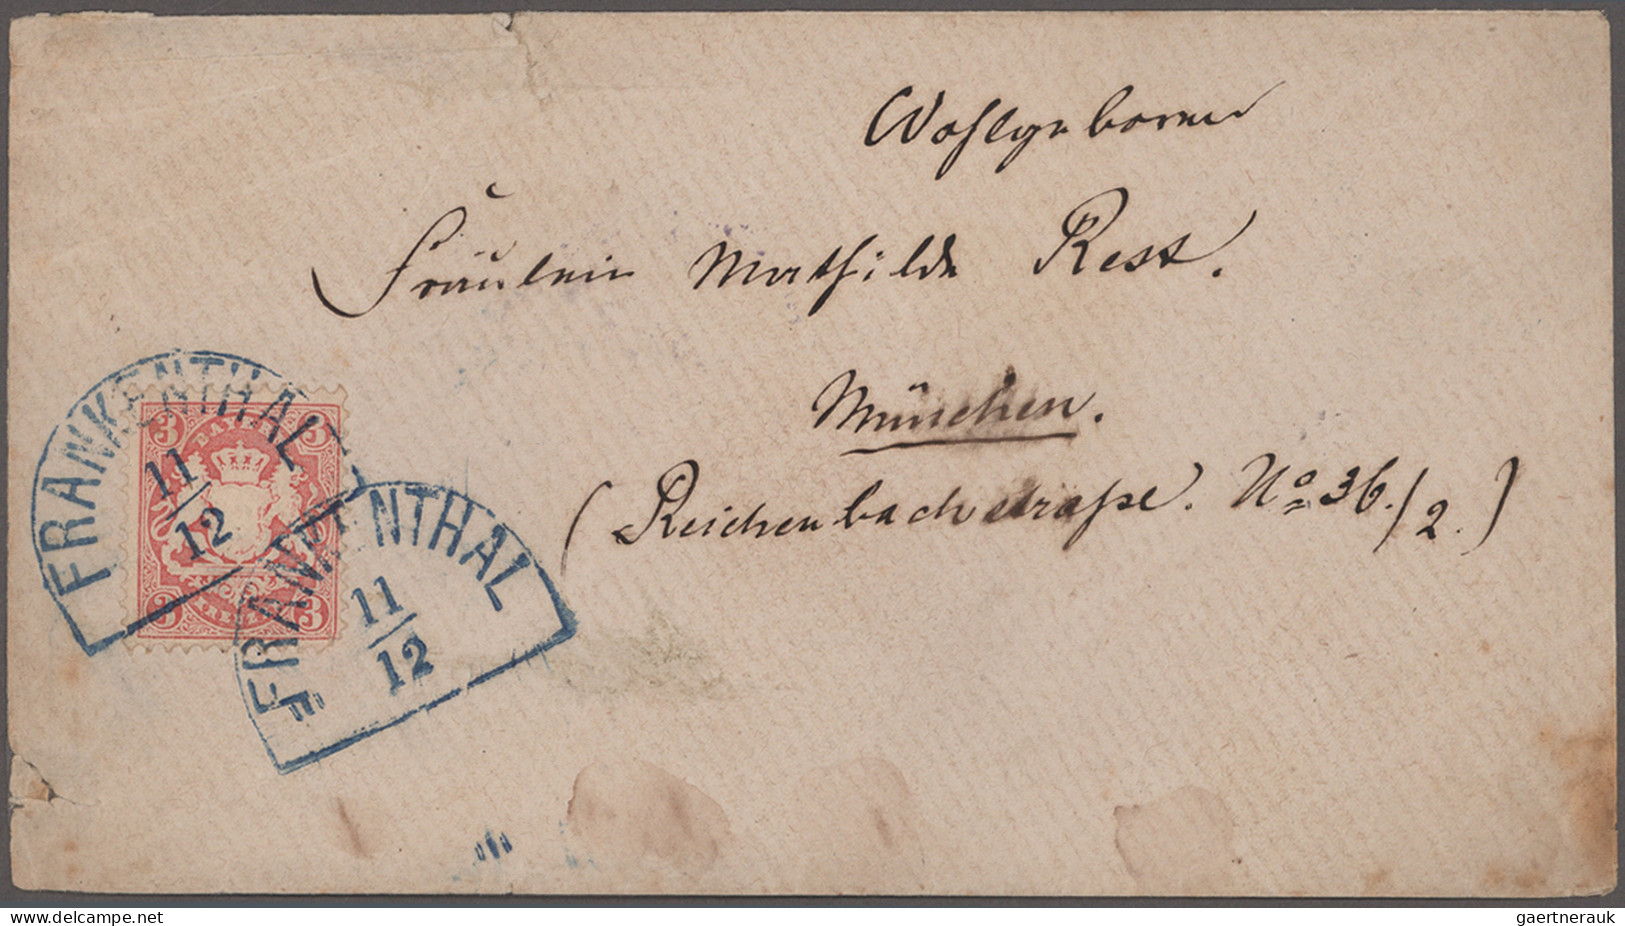 Wohlgeboren
Fräulein Mathilde Rest.
München.
(Reichenbachstraße. No 36./2.)
FRANKENTHAL
11
12
3 BAYERN 3
3 KREUZER 3
FRANKENTHAL
11
12
www.delcampe.net
gaertnerauk